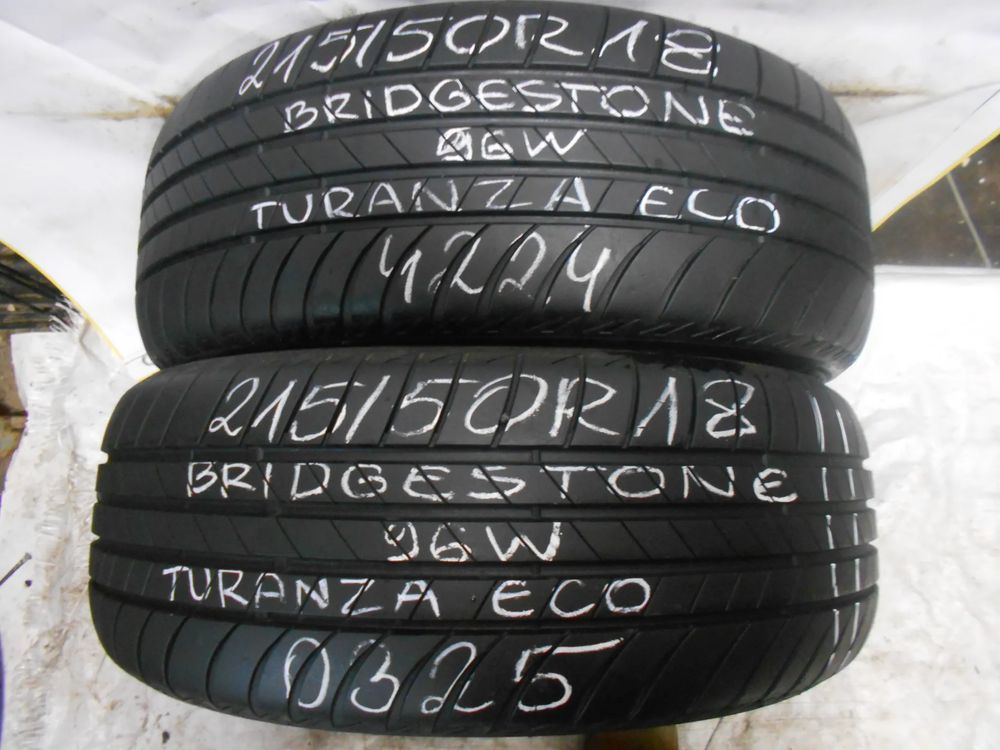 215/50R18
BRiDGESTONE
96W
TURANZA ECO
4224
215/50R18
BRIDGESTONE
96W
TURANZA ECO
0325